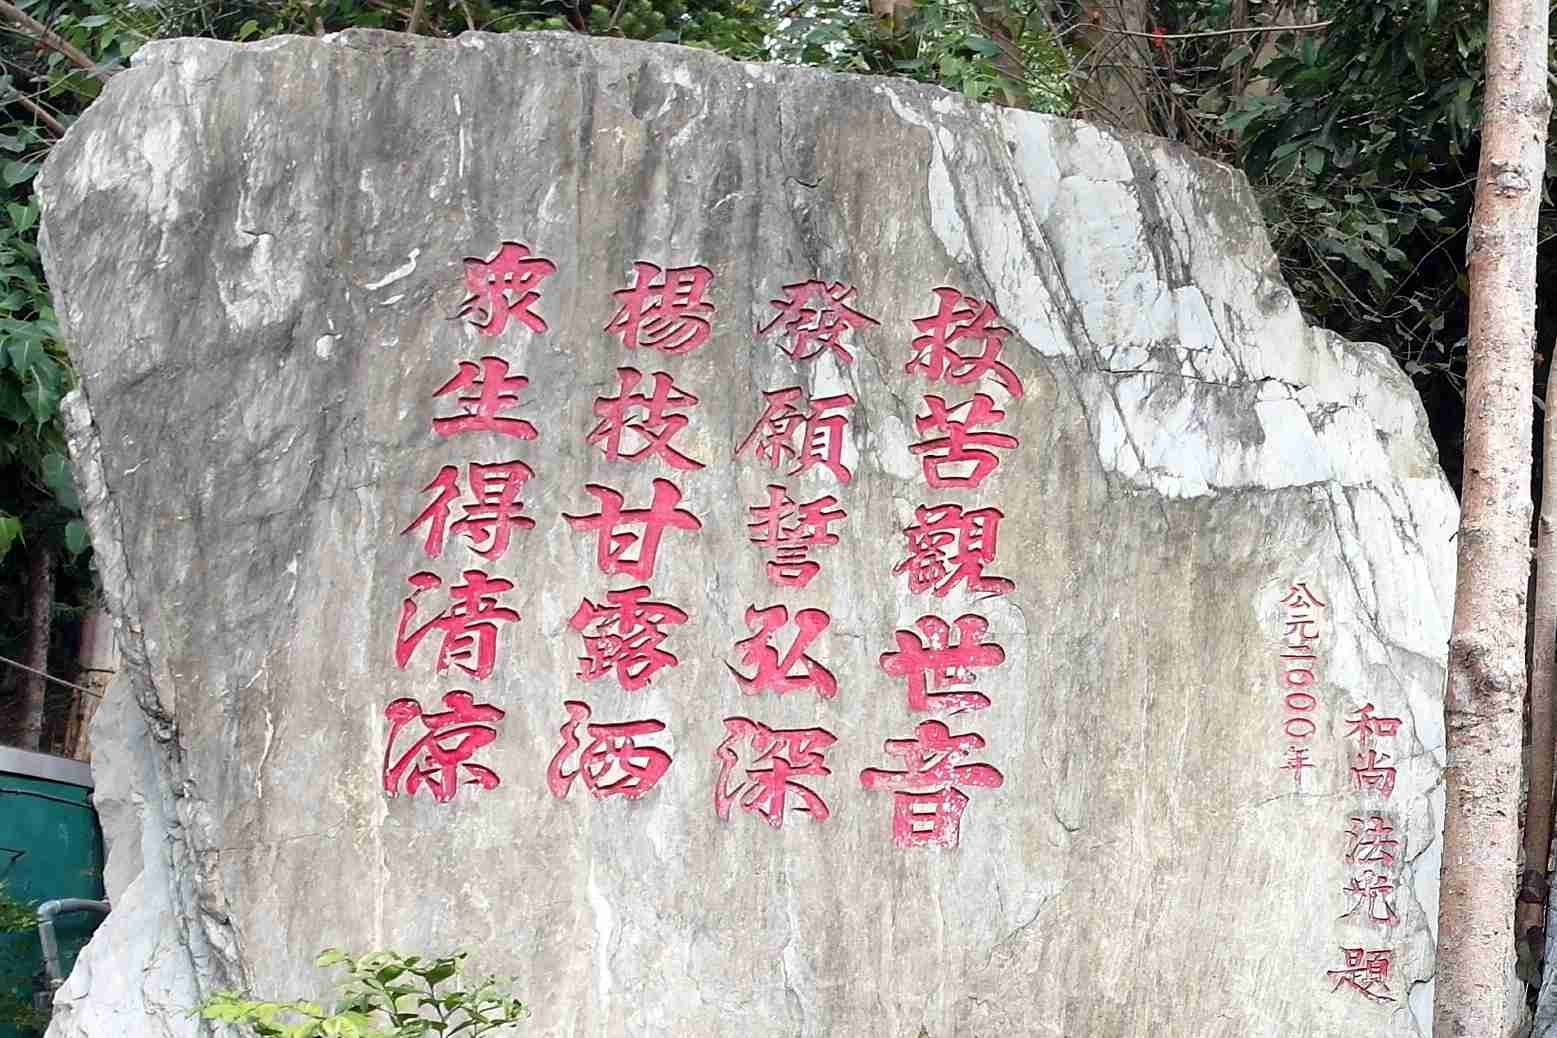 和尚法光題
公元二〇〇〇年
救苦觀世音
發願誓弘深
楊枝甘露洒
衆生得清涼